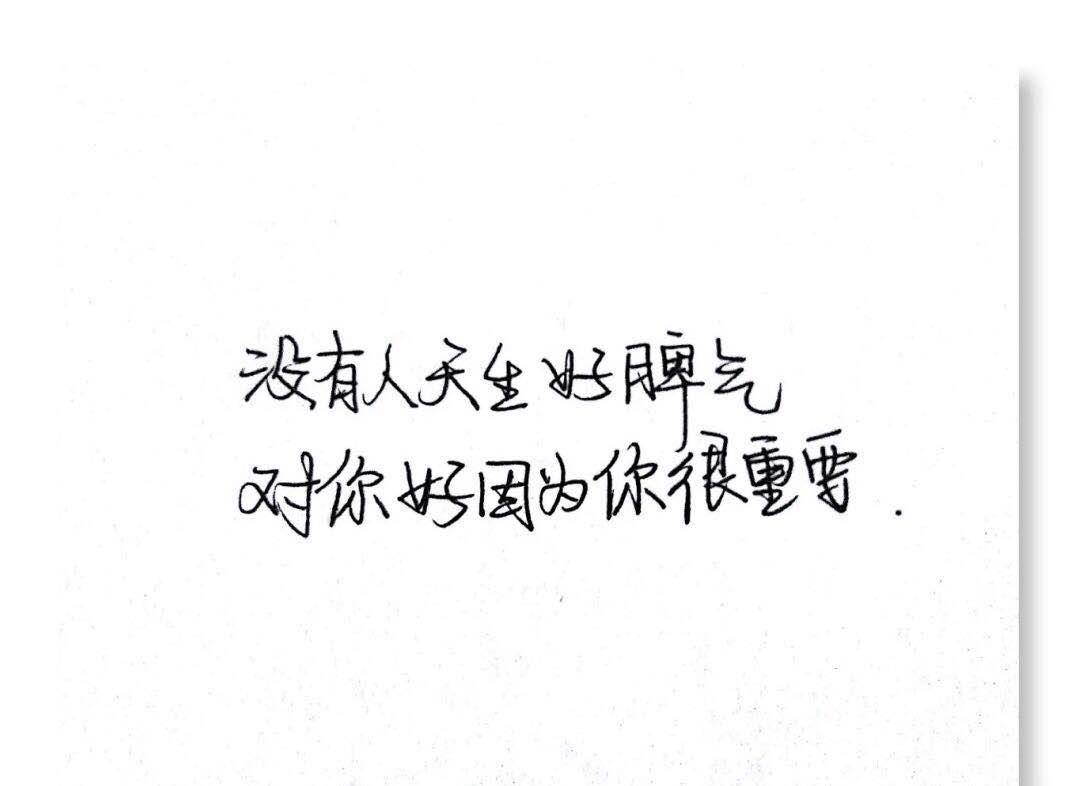 没有人天生好脾气
对你好因为你很重要.